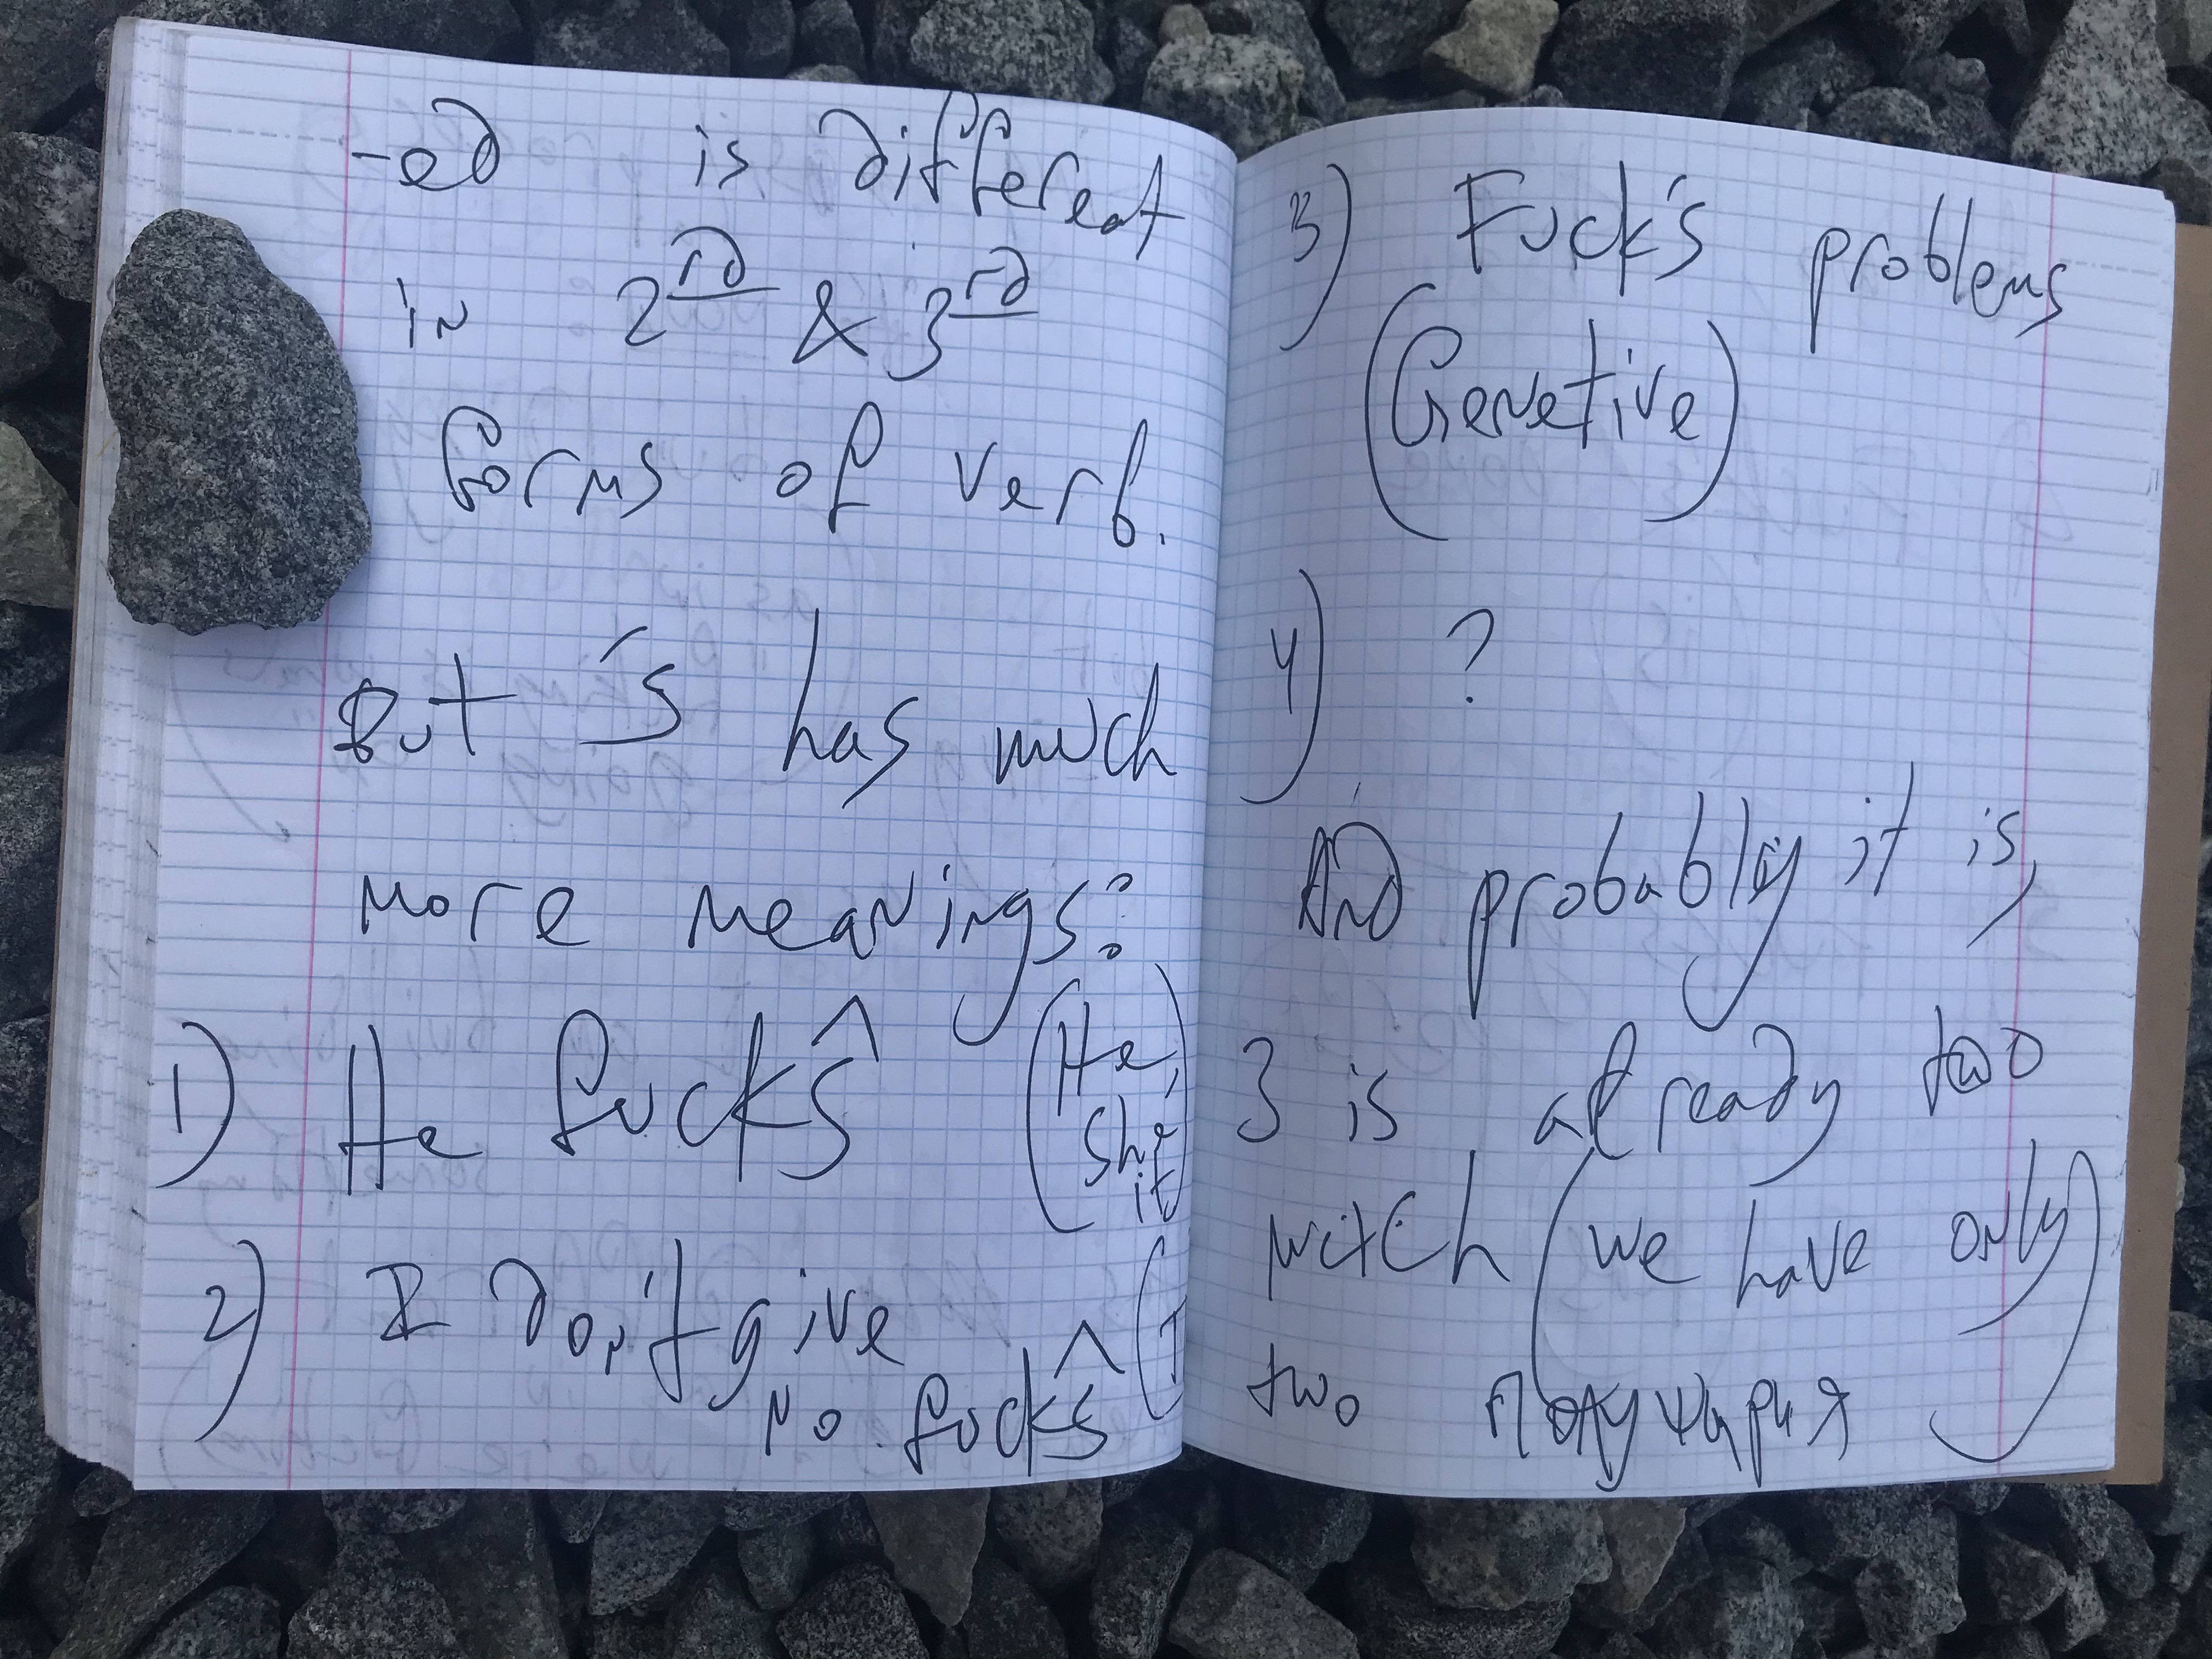 -ed is different
in 2ED & 3ED
forms of verb.
But 's has much
more meanings:
1) He fucks (He, she, it)
2) I don't give
no fucks (1)
3) Fuck's problems
(Genetive)
4) ?
And probably it is,
3 is already too
witch (we have only
two полужыря)